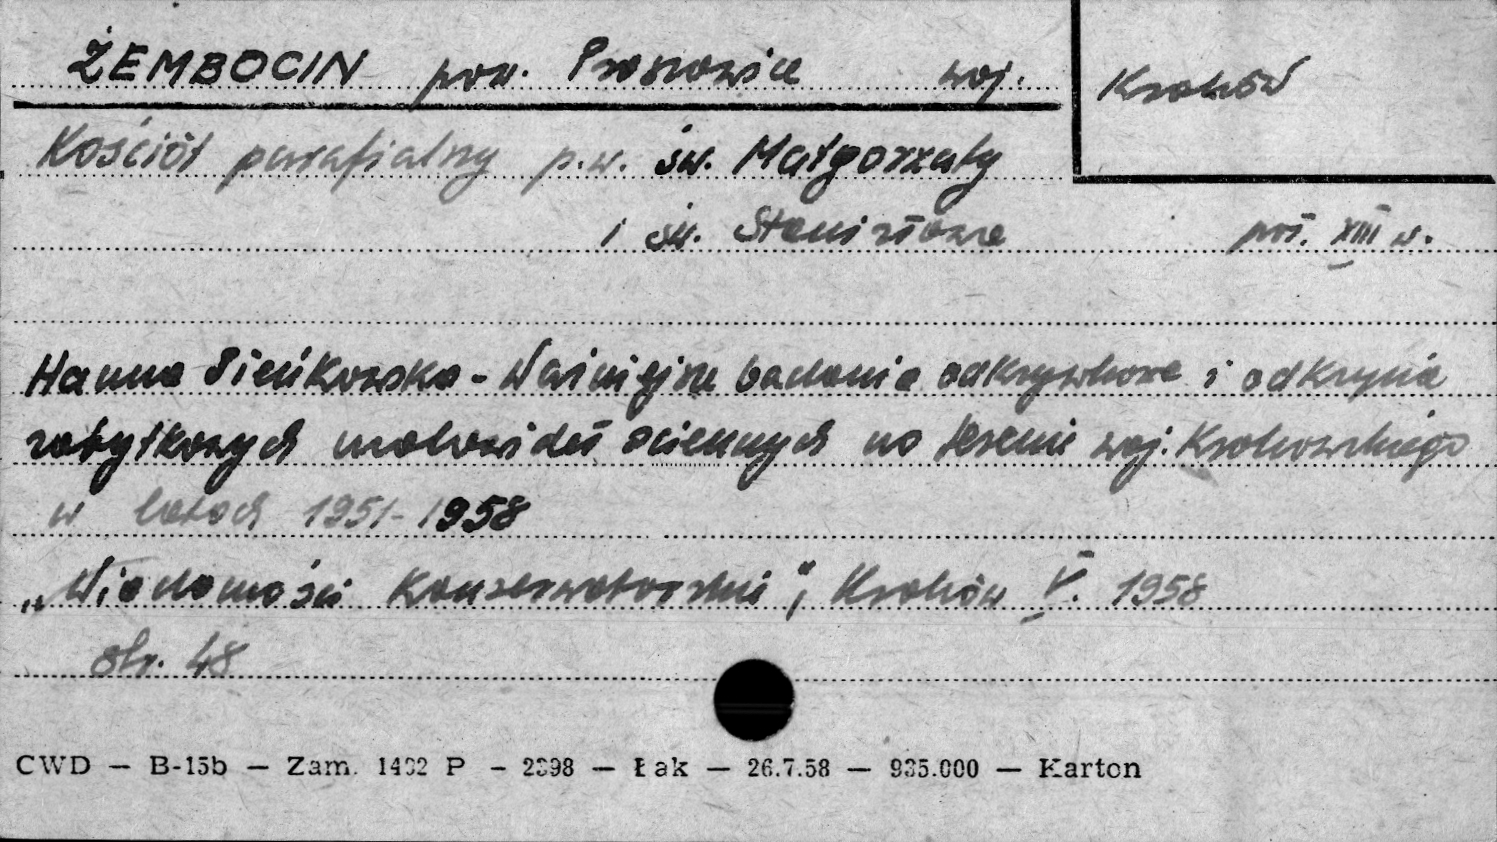 ŻEMBOCIN pow. Proszowice woj. Kraków
Kościół parafialny p.w. św. Małgorzaty
i św. Stanisława poł. XIII w.
Hanna Pieńkowska - Ważniejsze badania odkrywkowe i odkrycia
zabytkowych malowideł ściennych na terenie woj. Krakowskiego
w latach 1951-1958
„Wiadomości Konserwatorskie", Kraków V. 1958
str. 48
CWD — B-15b — Zam. 1432 P — 2398 — Łak — 26.7.58 — 935.000 — Karton